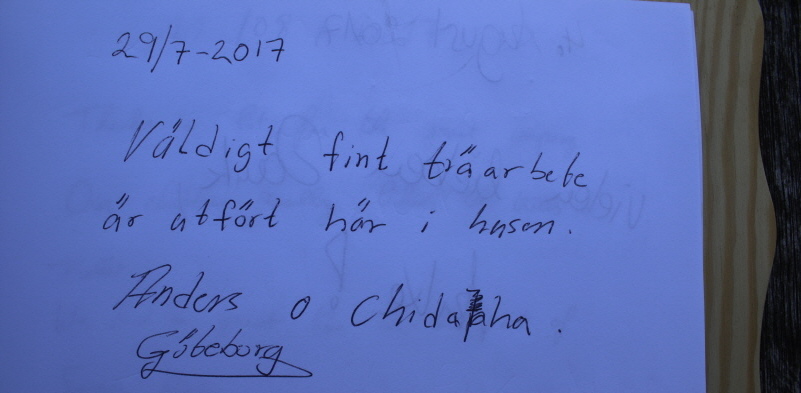 29/7-2017
Väldigt fint träarbete
är utfört här i husen.
Anders o
Göteborg